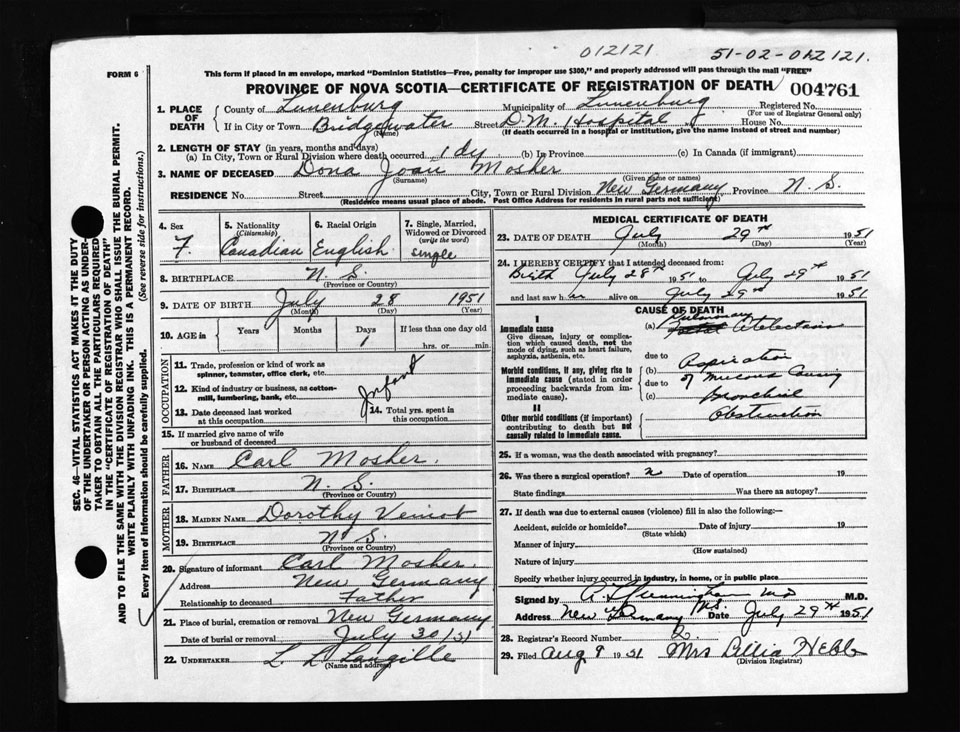 012121
51-02-012121.
FORM 6
This form if placed in an envelope, marked "Dominion Statistics—Free, penalty for improper use $300," and properly addressed will pass through the mail "FREE"
PROVINCE OF NOVA SCOTIA—CERTIFICATE OF REGISTRATION OF DEATH
004761
1. PLACE OF DEATH
County of Lunenburg Municipality of Lunenburg Registered No.
(For use of Registrar General only)
If in City or Town Bridgewater Street D.M. Hospital House No.
(Name) (If death occurred in a hospital or institution, give the name instead of street and number)
2. LENGTH OF STAY (in years, months and days)
(a) In City, Town or Rural Division where death occurred 1 dy (b) In Province (c) In Canada (if immigrant)
3. NAME OF DECEASED Dona Joan Mosher
(Surname) (Given name or names)
RESIDENCE No. Street City, Town or Rural Division New Germany Province N. S.
(Residence means usual place of abode. Post Office Address for residents in rural parts not sufficient)
4. Sex F.
5. Nationality (Citizenship) Canadian
6. Racial Origin English
7. Single, Married, Widowed or Divorced (write the word) single
8. BIRTHPLACE N. S.
(Province or Country)
9. DATE OF BIRTH July 28 1951
(Month) (Day) (Year)
10. AGE in Years Months Days 1 If less than one day old
hrs. or min.
OCCUPATION
11. Trade, profession or kind of work as spinner, teamster, office clerk, etc.
12. Kind of industry or business, as cotton-mill, lumbering, bank, etc.
Infant
13. Date deceased last worked at this occupation
14. Total yrs. spent in this occupation
15. If married give name of wife or husband of deceased
FATHER
16. NAME Carl Mosher.
17. BIRTHPLACE N. S.
(Province or Country)
MOTHER
18. MAIDEN NAME Dorothy Veinot
19. BIRTHPLACE N. S.
(Province or Country)
20. Signature of informant Carl Mosher
Address New Germany
Relationship to deceased Father
21. Place of burial, cremation or removal New Germany
Date of burial or removal July 30/51
22. UNDERTAKER L. L. Langille
(Name and address)
MEDICAL CERTIFICATE OF DEATH
23. DATE OF DEATH July 29th 1951
(Month) (Day) (Year)
24. I HEREBY CERTIFY that I attended deceased from:
Birth July 28th 1951 to July 29th 1951
and last saw h er alive on July 29th 1951
CAUSE OF DEATH
I
Immediate cause
Give disease, injury or complication which caused death, not the mode of dying, such as heart failure, asphyxia, asthenia, etc.
(a) Pulmonary Atelectasis
due to
Morbid conditions, if any, giving rise to immediate cause (stated in order proceeding backwards from immediate cause).
(b) Aspiration
due to of mucous causing
(c) Bronchial
Obstruction
II
Other morbid conditions (if important) contributing to death but not causally related to immediate cause.
25. If a woman, was the death associated with pregnancy?
26. Was there a surgical operation? Date of operation 19
State findings Was there an autopsy?
27. If death was due to external causes (violence) fill in also the following:—
Accident, suicide or homicide? Date of injury 19
(State which)
Manner of injury
(How sustained)
Nature of injury
Specify whether injury occurred in industry, in home, or in public place
Signed by Cunningham MD M.D.
Address New Germany N.S. Date July 29th 1951
28. Registrar's Record Number 2.
29. Filed Aug 9 1951 Mrs Lillia Hebb
(Division Registrar)
SEC. 46—VITAL STATISTICS ACT MAKES IT THE DUTY
OF THE UNDERTAKER OR PERSON ACTING AS UNDER-
TAKER TO OBTAIN ALL THE PARTICULARS REQUIRED
IN THE "CERTIFICATE OF REGISTRATION OF DEATH"
AND TO FILE THE SAME WITH THE DIVISION REGISTRAR WHO SHALL ISSUE THE BURIAL PERMIT.
WRITE PLAINLY WITH UNFADING INK. THIS IS A PERMANENT RECORD.
Every item of information should be carefully supplied. (See reverse side for instructions.)